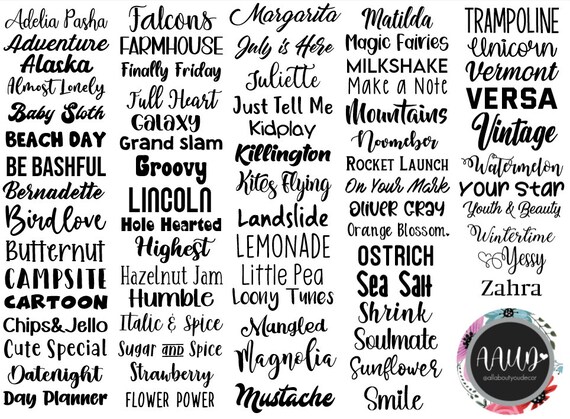 Adelia Pasha
Adventure
Alaska
Almost Lonely
Baby Sloth
BEACH DAY
BE BASHFUL
Bernadette
Birdlove
Butternut
CAMPSITE
CARTOON
Chips&Jello
Cute Special
Datenight
Day Planner
Falcons
FARMHOUSE
Finally Friday
Full Heart
GalaXy
Grand slam
Groovy
LINCOLN
Hole Hearted
Highest
Hazelnut Jam
Humble
Italic & Spice
Sugar and Spice
Strawberry
FLOWER POWER
Margarita
July is Here
Juliette
Just Tell Me
Kidplay
Killington
Kites Flying
Landslide
LEMONADE
Little Pea
Loony Tunes
Mangled
Magnolia
Mustache
Matilda
Magic Fairies
MILKSHAKE
Make a Note
Mountains
Novmeber
ROCKET LAUNCH
On Your Mark
OLIVER GRAY
Orange Blossom.
OSTRICH
Sea Salt
Shrink
Soulmate
Sunflower
Smile
TRAMPOLINE
Unicorn
Vermont
VERSA
Vintage
Watermelon
Your Star
Youth & Beauty
Wintertime
Yessy
Zahra
AAUD
@allaboutyoudecor